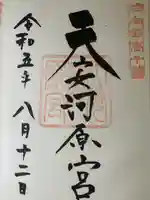 天安河原宮
令和五年
八月十二日